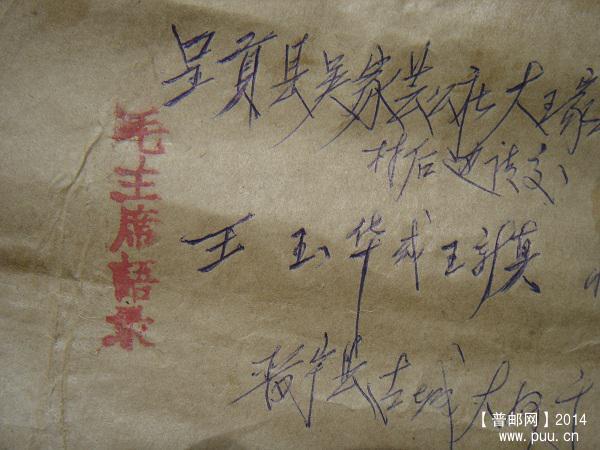 呈贡县吴家营公社大王家
村后边请交
王玉华或王新真
晋宁县古城大
毛主席语录
【普邮网】2014
www.puu.cn